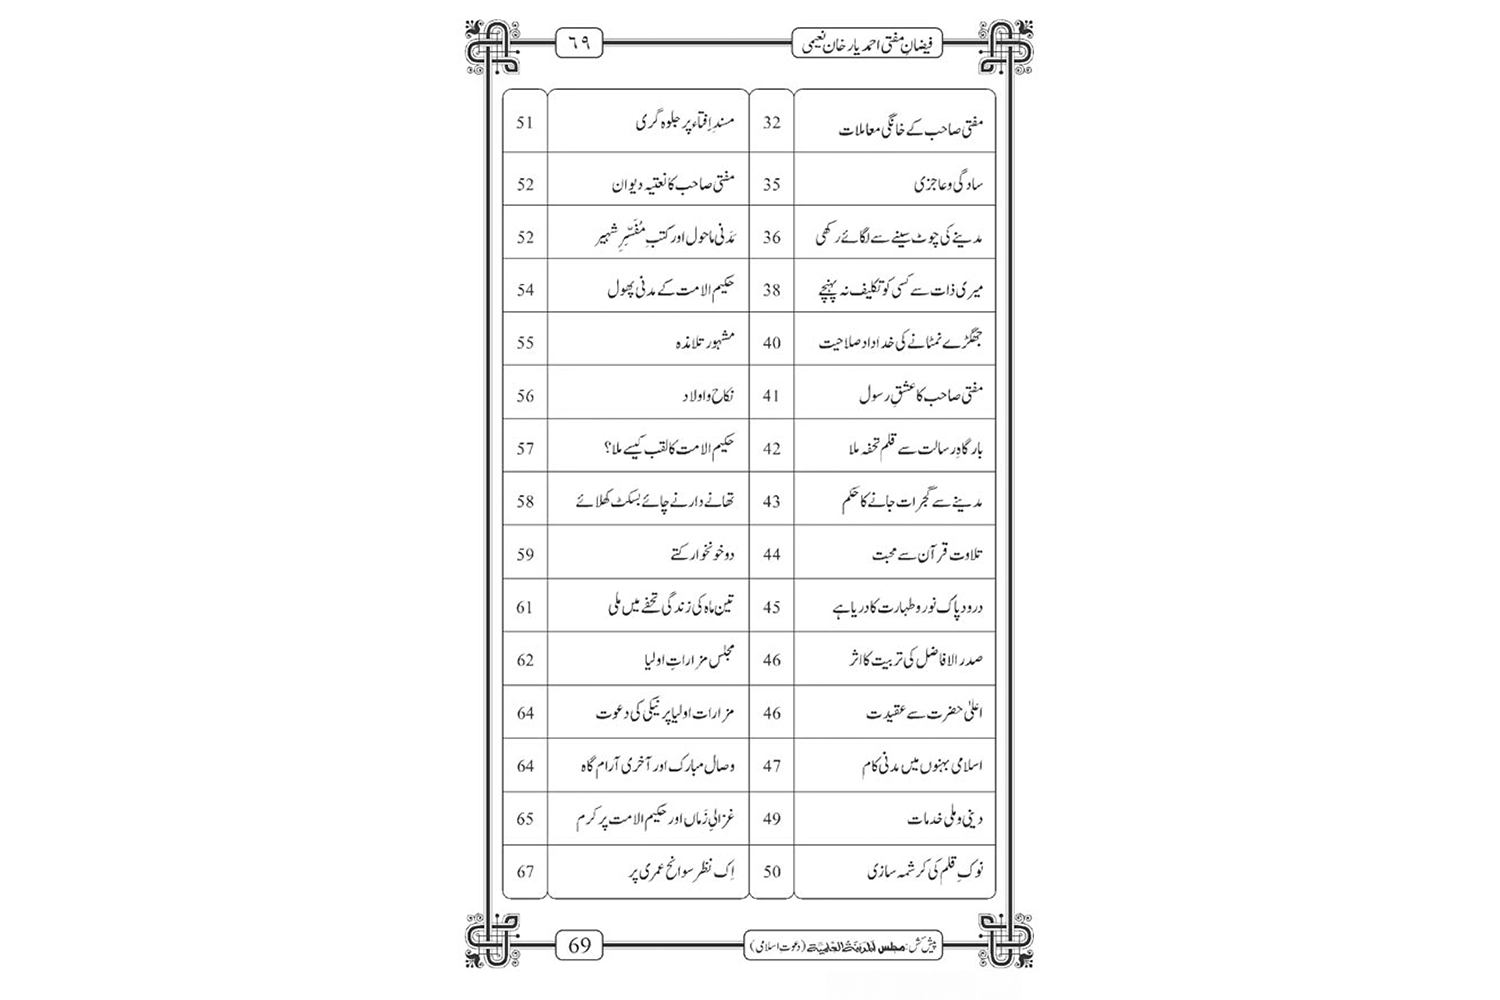 فیضانِ مفتی احمد یار خان نعیمی ٦٩
مفتی صاحب کے خانگی معاملات 32 مسندِ اِفتاء پر جلوہ گری 51
سادگی و عاجزی 35 مفتی صاحب کا نعتیہ دیوان 52
مدینے کی چوٹ سینے سے لگائے رکھی 36 مَدَنی ماحول اور کتبِ مُفَسِّرِ شہیر 52
میری ذات سے کسی کو تکلیف نہ پہنچے 38 حکیم الامت کے مدنی پھول 54
جھگڑے نمٹانے کی خداداد صلاحیت 40 مشہور تلامذہ 55
مفتی صاحب کا عشقِ رسول 41 نکاح و اولاد 56
بارگاہِ رسالت سے قلم تحفہ ملا 42 حکیم الامت کا لقب کیسے ملا؟ 57
مدینے سے گجرات جانے کا حکم 43 تھانے دار نے چائے بسکٹ کھلائے 58
تلاوت قرآن سے محبت 44 دو خونخوار کتے 59
درود پاک نور و طہارت کا دریا ہے 45 تین ماہ کی زندگی تحفے میں ملی 61
صدر الافاضل کی تربیت کا اثر 46 مجلس مزاراتِ اولیا 62
اعلیٰ حضرت سے عقیدت 46 مزارات اولیا پر نیکی کی دعوت 64
اسلامی بہنوں میں مدنی کام 47 وصال مبارک اور آخری آرام گاہ 64
دینی و ملی خدمات 49 غزالیِ زَماں اور حکیم الامت پر کرم 65
نوکِ قلم کی کرشمہ سازی 50 اِک نظر سوانح عمری پر 67
پیش کش: مجلس المدینۃ العلمیۃ (دعوتِ اسلامی) 69